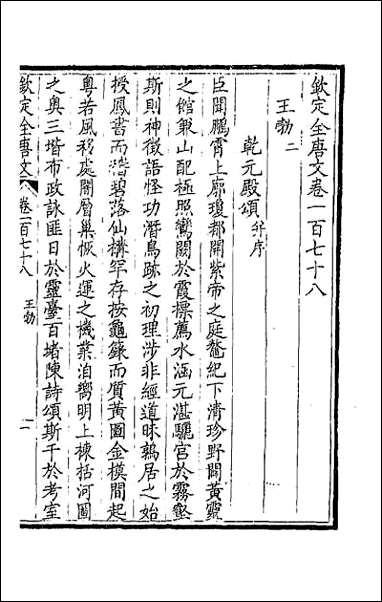 欽定全唐文卷一百七十八
王勃二
乾元殿頌并序
臣聞鵬霄上廓瓊都開紫帝之庭鼇紀下清珍野闢黃靈
之館緱山配極照鸞闕於霞標薦水涵元湛驪宮於霧壑
斯則神徵語怪功潛鳥跡之初理涉非經道昧鶉居之始
授鳳書而濳碧落仙構罕存按龜籙而質黃圖金模間起
粵若風移處闇層巢恢火運之機業洎嚮明上棟括河圖
之奧三階布政詠匪日於靈臺百堵陳詩頌斯干於考室
欽定全唐文 卷一百七十八 王勃 一